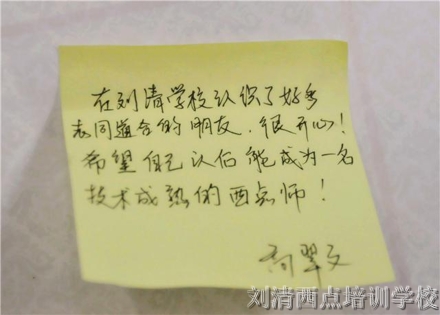 在刘清学校认识了好多
志同道合的朋友，很开心！
希望自己以后能成为一名
技术成熟的西点师！
翠文
刘清西点培训学校